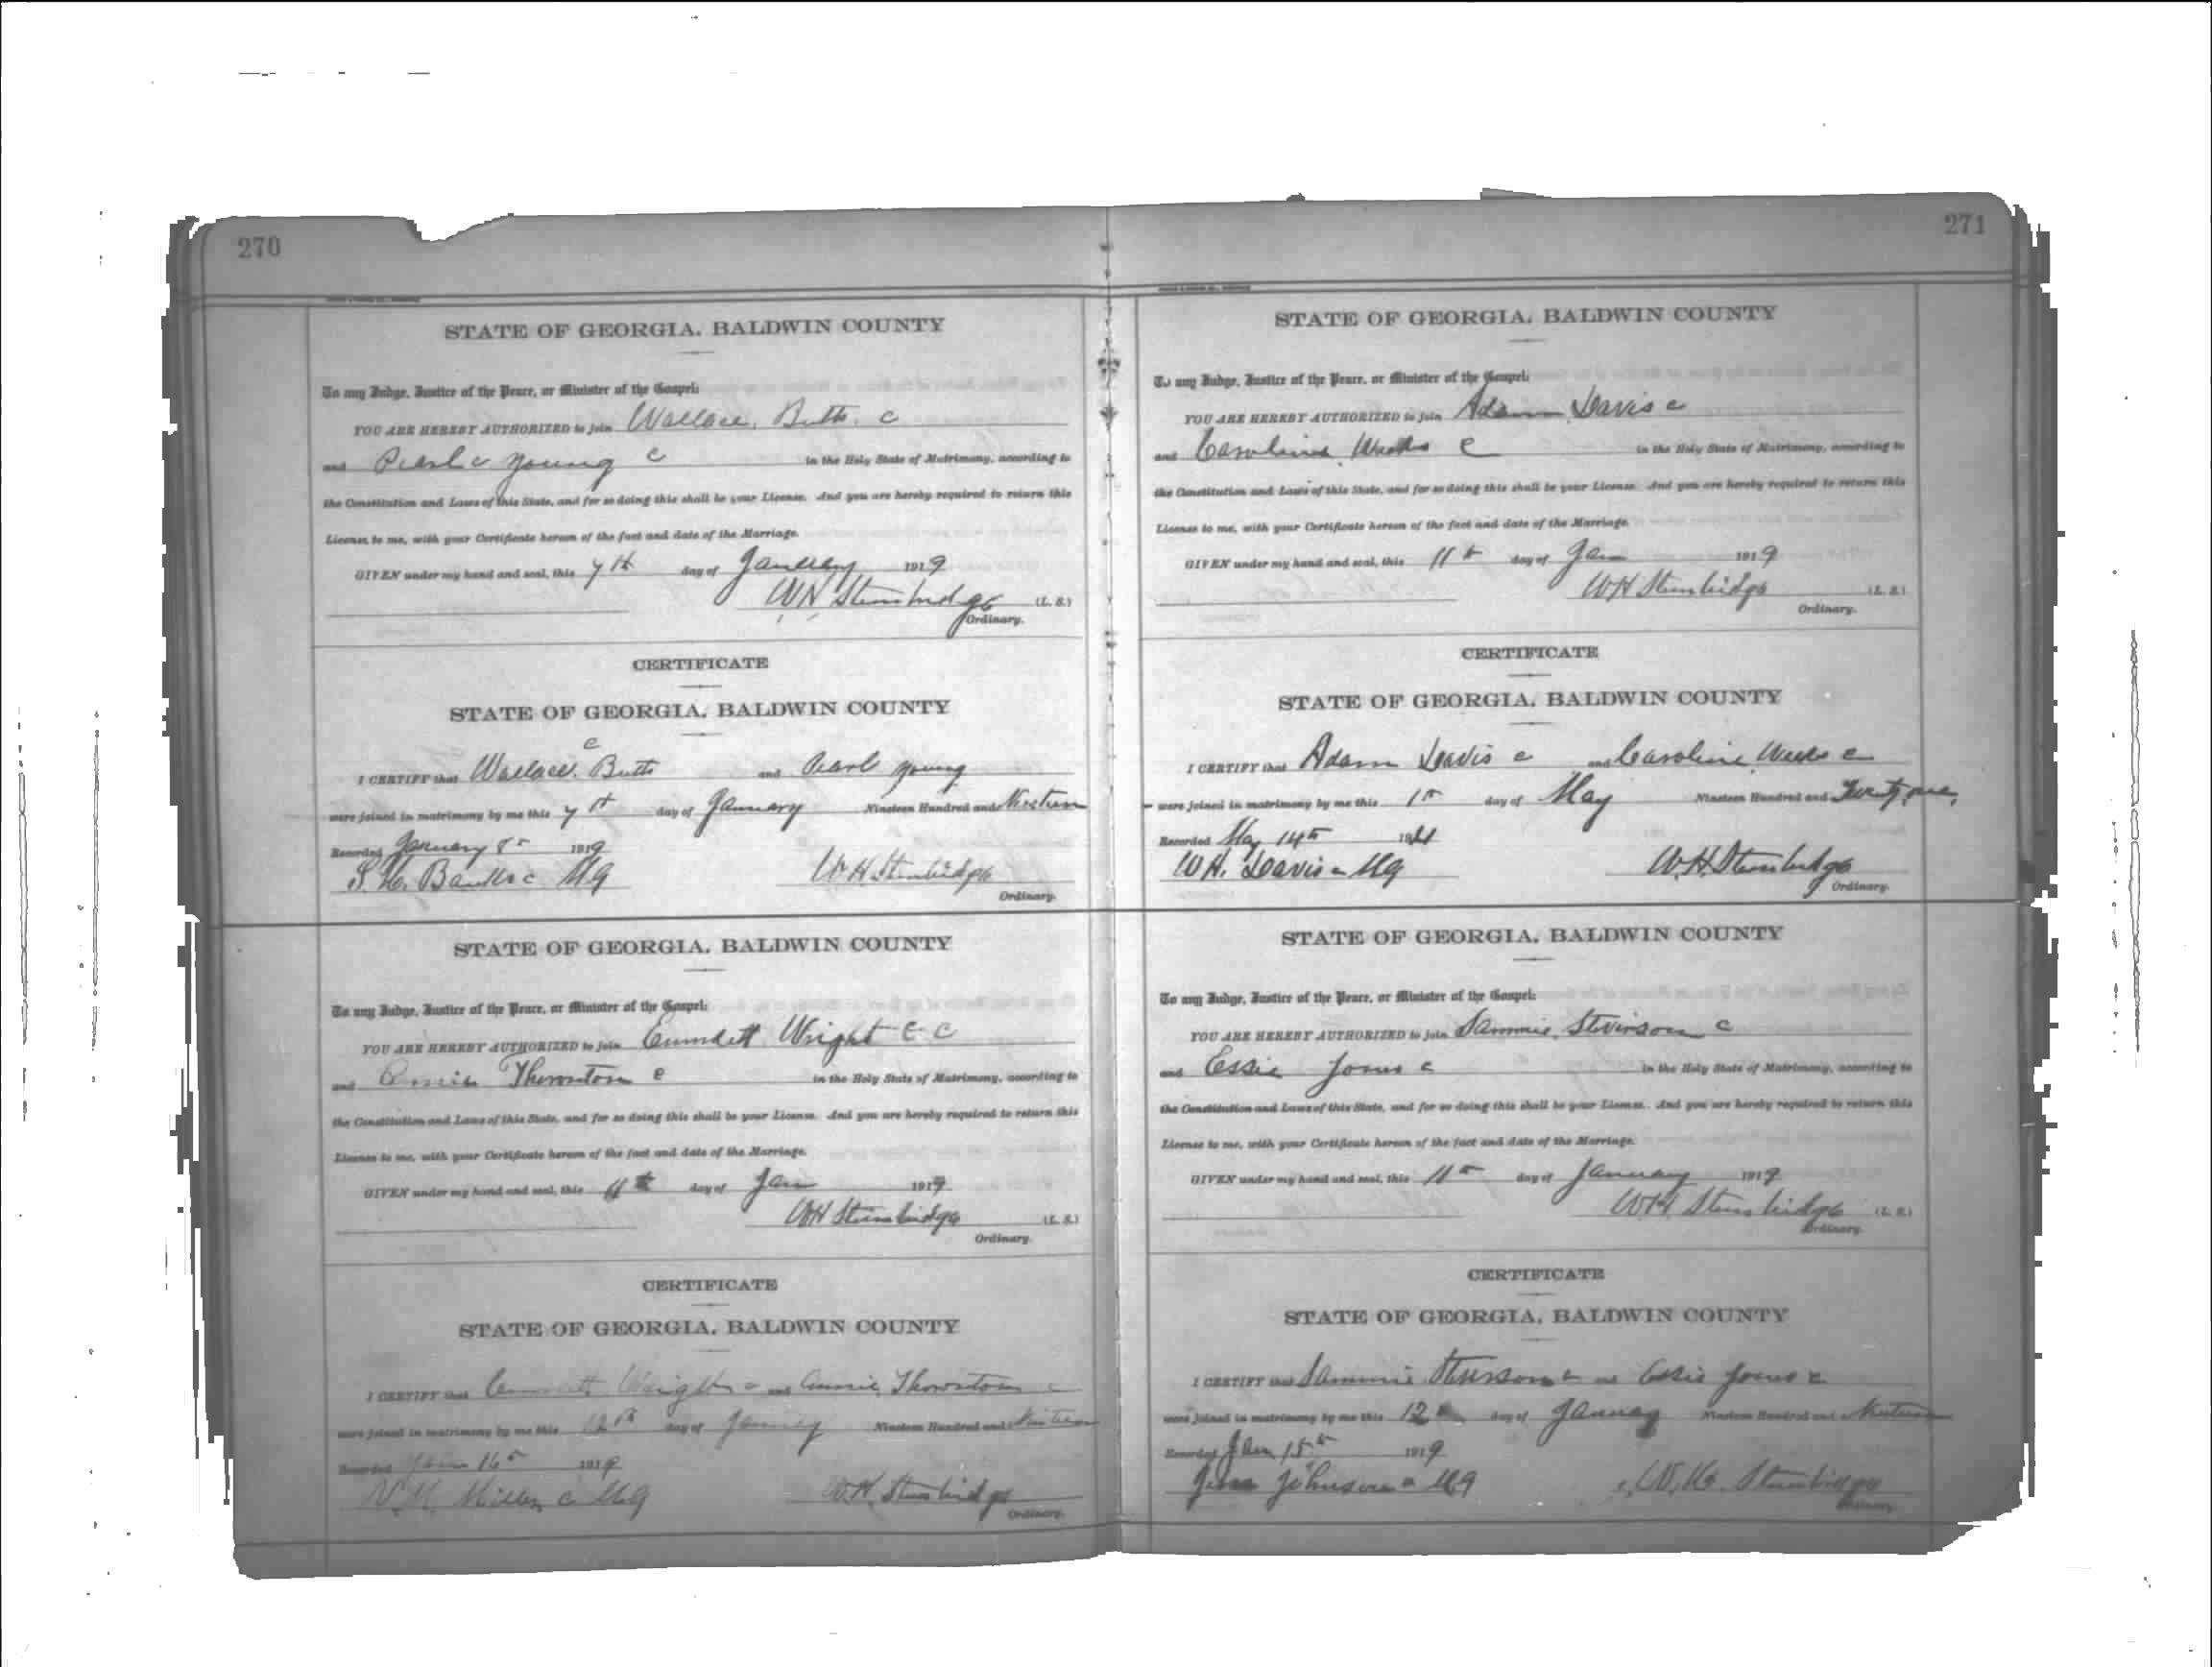 270
STATE OF GEORGIA, BALDWIN COUNTY
To any Judge, Justice of the Peace, or Minister of the Gospel:
YOU ARE HEREBY AUTHORIZED to join Wallace Butts. c
and Pearl c Young c in the Holy State of Matrimony, according to
the Constitution and Laws of this State, and for so doing this shall be your License. And you are hereby required to return this
License to me, with your Certificate hereon of the fact and date of the Marriage.
GIVEN under my hand and seal, this 7th day of January 1919
WH Stembridge (L. S.)
Ordinary.
CERTIFICATE
STATE OF GEORGIA, BALDWIN COUNTY
c
I CERTIFY that Wallace Butts and Pearl Young
were joined in matrimony by me this 7th day of January Nineteen Hundred and Nineteen
Recorded January 8th 1919
Banks c MG WH Stembridge
Ordinary.
STATE OF GEORGIA, BALDWIN COUNTY
To any Judge, Justice of the Peace, or Minister of the Gospel:
YOU ARE HEREBY AUTHORIZED to join Emmett Wright C C
and Annie Thornton c in the Holy State of Matrimony, according to
the Constitution and Laws of this State, and for so doing this shall be your License. And you are hereby required to return this
License to me, with your Certificate hereon of the fact and date of the Marriage.
GIVEN under my hand and seal, this 11th day of Jan 1919
WH Stembridge (L. S.)
Ordinary.
CERTIFICATE
STATE OF GEORGIA, BALDWIN COUNTY
I CERTIFY that Emmett Wright c and Annie Thornton c
were joined in matrimony by me this 12th day of January Nineteen Hundred and Nineteen
Recorded Jan 16th 1919
Miller c MG W.H. Stembridge
Ordinary.
271
STATE OF GEORGIA, BALDWIN COUNTY
To any Judge, Justice of the Peace, or Minister of the Gospel:
YOU ARE HEREBY AUTHORIZED to join Adam Davis c
and Caroline Weeks c in the Holy State of Matrimony, according to
the Constitution and Laws of this State, and for so doing this shall be your License. And you are hereby required to return this
License to me, with your Certificate hereon of the fact and date of the Marriage.
GIVEN under my hand and seal, this 11th day of Jan 1919
WH Stembridge (L. S.)
Ordinary.
CERTIFICATE
STATE OF GEORGIA, BALDWIN COUNTY
I CERTIFY that Adam Davis c and Caroline Weeks c
were joined in matrimony by me this 1st day of May Nineteen Hundred and Twenty one.
Recorded May 14th 1921
W.H. Davis c MG W.H. Stembridge
Ordinary.
STATE OF GEORGIA, BALDWIN COUNTY
To any Judge, Justice of the Peace, or Minister of the Gospel:
YOU ARE HEREBY AUTHORIZED to join Sammie Stevinson c
and Essie Jones c in the Holy State of Matrimony, according to
the Constitution and Laws of this State, and for so doing this shall be your License. And you are hereby required to return this
License to me, with your Certificate hereon of the fact and date of the Marriage.
GIVEN under my hand and seal, this 11th day of January 1919
W.H. Stembridge (L. S.)
Ordinary.
CERTIFICATE
STATE OF GEORGIA, BALDWIN COUNTY
I CERTIFY that Sammie Stevinson c and Essie Jones c
were joined in matrimony by me this 12th day of January Nineteen Hundred and Nineteen
Recorded Jan 15th 1919
Johnson c MG W.H. Stembridge
Ordinary.